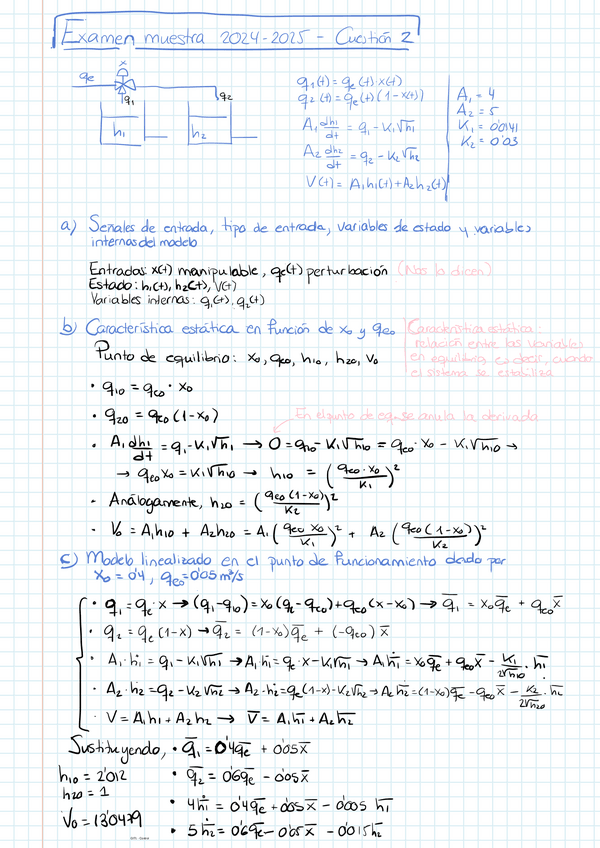 Examen muestra 2024-2025 - Cuestión 2
x
qe
q1
q2
h1
h2
q1(t) = qe(t)·x(t)
q2(t) = qe(t)(1-x(t))
A1 dh1/dt = q1 - K1√h1
A2 dh2/dt = q2 - K2√h2
V(t) = A1h1(t)+A2h2(t)
A1 = 4
A2 = 5
K1 = 0'0141
K2 = 0'03
a) Señales de entrada, tipo de entrada, variables de estado y variables
internas del modelo
Entradas: x(t) manipulable, qe(t) perturbación (Nos lo dicen)
Estado: h1(t), h2(t), V(t)
Variables internas: q1(t), q2(t)
b) Característica estática en función de x0 y qe0
Característica estática:
relación entre las variables
en equilibrio, es decir, cuando
el sistema se estabiliza
Punto de equilibrio: x0, qe0, h10, h20, V0
• q10 = qe0 · x0
• q20 = qe0 (1-x0)
En el punto de eq. se anula la derivada
• A1 dh1/dt = q1 - K1√h1 → 0 = q10 - K1√h10 = qe0 · x0 - K1√h10 →
→ qe0 x0 = K1√h10 → h10 = (qe0·x0/K1)²
• Análogamente, h20 = (qe0(1-x0)/K2)²
• V0 = A1h10 + A2h20 = A1(qe0 x0/K1)² + A2(qe0(1-x0)/K2)²
c) Modelo linealizado en el punto de funcionamiento dado por
x0 = 0'4, qe0 = 0'05 m³/s
• q1 = qe·x → (q1-q10) = x0(qe-qe0)+qe0(x-x0) → q̄1 = x0q̄e + qe0x̄
• q2 = qe(1-x) → q̄2 = (1-x0)q̄e + (-qe0)x̄
• A1·ḣ1 = q1 - K1√h1 → A1·ḣ1 = qe·x - K1√h1 → A1 h̄̇1 = x0q̄e + qe0x̄ - K1/2√h10 · h̄1
• A2·ḣ2 = q2 - K2√h2 → A2·ḣ2 = qe(1-x) - K2√h2 → A2 h̄̇2 = (1-x0)q̄e - qe0x̄ - K2/2√h20 · h̄2
• V = A1h1 + A2h2 → V̄ = A1h̄1 + A2h̄2
Sustituyendo, • q̄1 = 0'4q̄e + 0'05x̄
h10 = 2'012
• q̄2 = 0'6q̄e - 0'05x̄
h20 = 1
• 4h̄̇1 = 0'4q̄e + 0'05x̄ - 0'005 h̄1
V0 = 13'0479
• 5h̄̇2 = 0'6q̄e - 0'05x̄ - 0'015h̄2